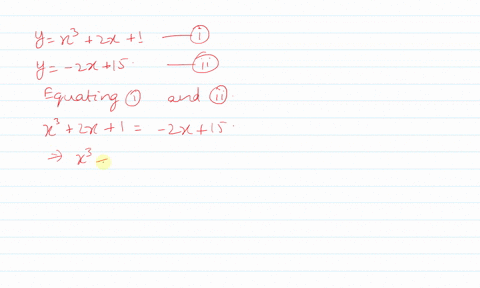 y = x³ + 2x + 1 — (i)
y = -2x + 15. — (ii)
Equating (i) and (ii)
x³ + 2x + 1 = -2x + 15.
→ x³